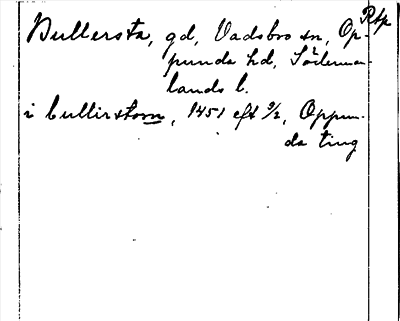 Rsp
Bullersta, gd, Vadsbro sn, Op-
punda hd, Söderman-
lands l.
i bullirstom, 1451 eft 9/2, Oppun-
da ting